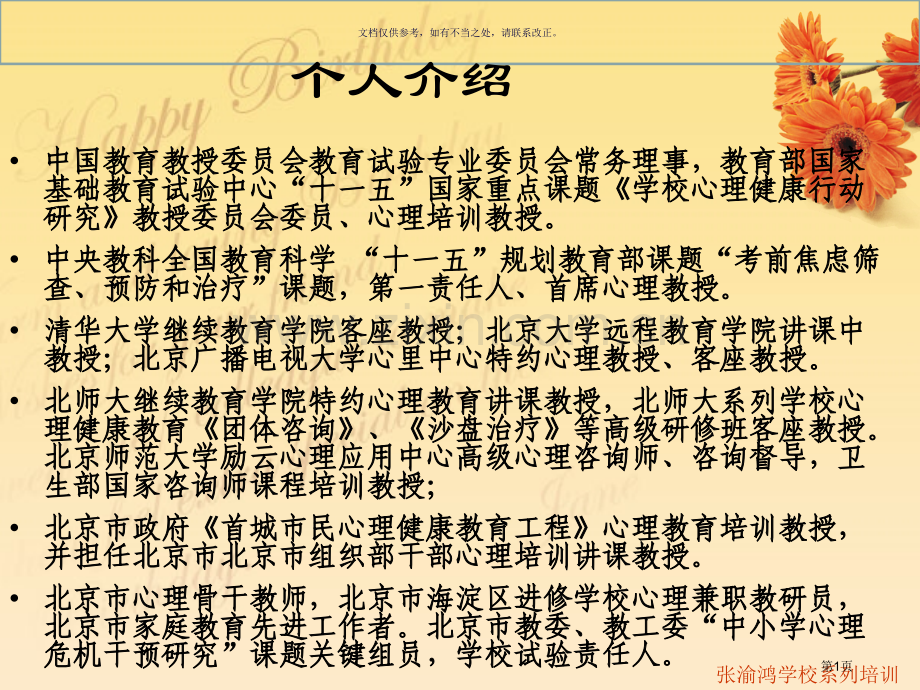 文档仅供参考，如有不当之处，请联系改正。
个人介绍
• 中国教育教授委员会教育试验专业委员会常务理事，教育部国家
基础教育试验中心“十一五”国家重点课题《学校心理健康行动
研究》教授委员会委员、心理培训教授。
• 中央教科全国教育科学 “十一五”规划教育部课题“考前焦虑筛
查、预防和治疗”课题，第一责任人、首席心理教授。
• 清华大学继续教育学院客座教授；北京大学远程教育学院讲课中
教授；北京广播电视大学心里中心特约心理教授、客座教授。
• 北师大继续教育学院特约心理教育讲课教授，北师大系列学校心
理健康教育《团体咨询》、《沙盘治疗》等高级研修班客座教授。
北京师范大学励云心理应用中心高级心理咨询师、咨询督导，卫
生部国家咨询师课程培训教授；
• 北京市政府《首城市民心理健康教育工程》心理教育培训教授，
并担任北京市北京市组织部干部心理培训讲课教授。
• 北京市心理骨干教师，北京市海淀区进修学校心理兼职教研员，
北京市家庭教育先进工作者。北京市教委、教工委“中小学心理
危机干预研究”课题关键组员，学校试验责任人。
第1页
张渝鸿学校系列培训
Happy Birthday